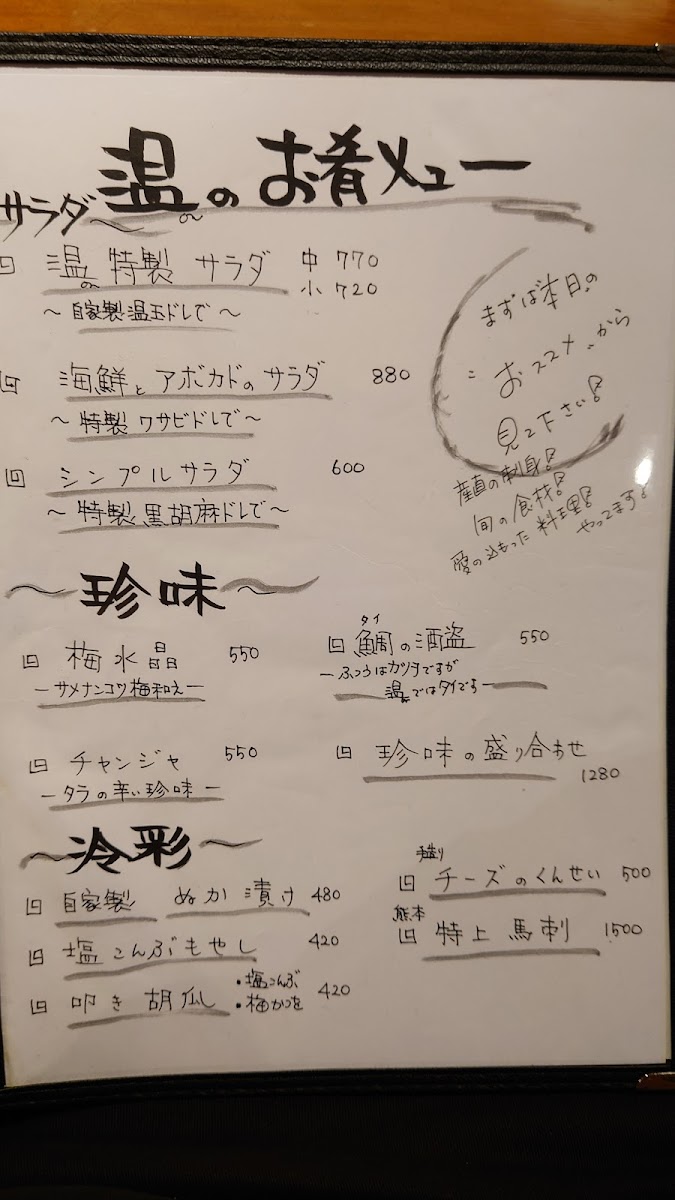 温のお肴メニュー
サラダ
温の特製サラダ 中 770
小 720
〜自家製温玉ドレで〜
海鮮とアボカドのサラダ 880
〜特製ワサビドレで〜
シンプルサラダ 600
〜特製黒胡麻ドレで〜
まずは本日の
おススメから
見て下さい!
産直の刺身!
旬の食材!
愛の込もった料理!
やってます!
〜珍味〜
梅水晶 550
ーサメナンコツ梅和えー
タイ
鯛の酒盗 550
ーふつうはカツオですが
温ではタイですー
チャンジャ 550
ータラの辛い珍味ー
珍味の盛り合わせ
1280
〜冷彩〜
自家製 ぬか漬け 480
塩こんぶもやし 420
叩き胡瓜 ・塩こんぶ ・梅かつお 420
手造り
チーズのくんせい 500
熊本
特上馬刺 1500